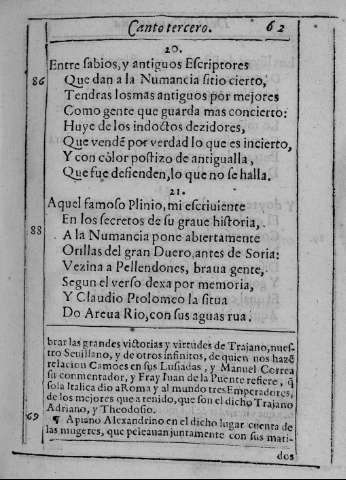 Canto tercero. 62
20.
Entre sabios, y antiguos Escriptores
86 Que dan a la Numancia sitio cierto,
Tendras losmas antiguos por mejores
Como gente que guarda mas concierto:
Huye de los indoctos dezidores,
Que vendē por verdad lo que es incierto,
Y con color postizo de antigualla,
Que fue defienden, lo que no se halla.
21.
Aquel famoso Plinio, mi escriuiente
En los secretos de su graue historia,
88 A la Numancia pone abiertamente
Orillas del gran Duero, antes de Soria:
Vezina a Pellendones, braua gente,
Segun el verso dexa por memoria,
Y Claudio Ptolomeo la situa
Do Areua Rio, con sus aguas rua.
brar las grandes victorias y virtudes de Trajano, nues-
tro Seuillano, y de otros infinitos, de quien nos hazē
relacion Camoes en sus Lusiadas, y Manuel Correa
su commentador, y Fray Iuan de la Puente refiere, q̄
sola Italica dio a Roma y al mundo tres Emperadores,
de los mejores que a tenido, que son el dicho Trajano
Adriano, y Theodosio.
69 ¶ Apiano Alexandrino en el dicho lugar cuenta de
las mugeres, que peleauan juntamente con sus mari-
dos